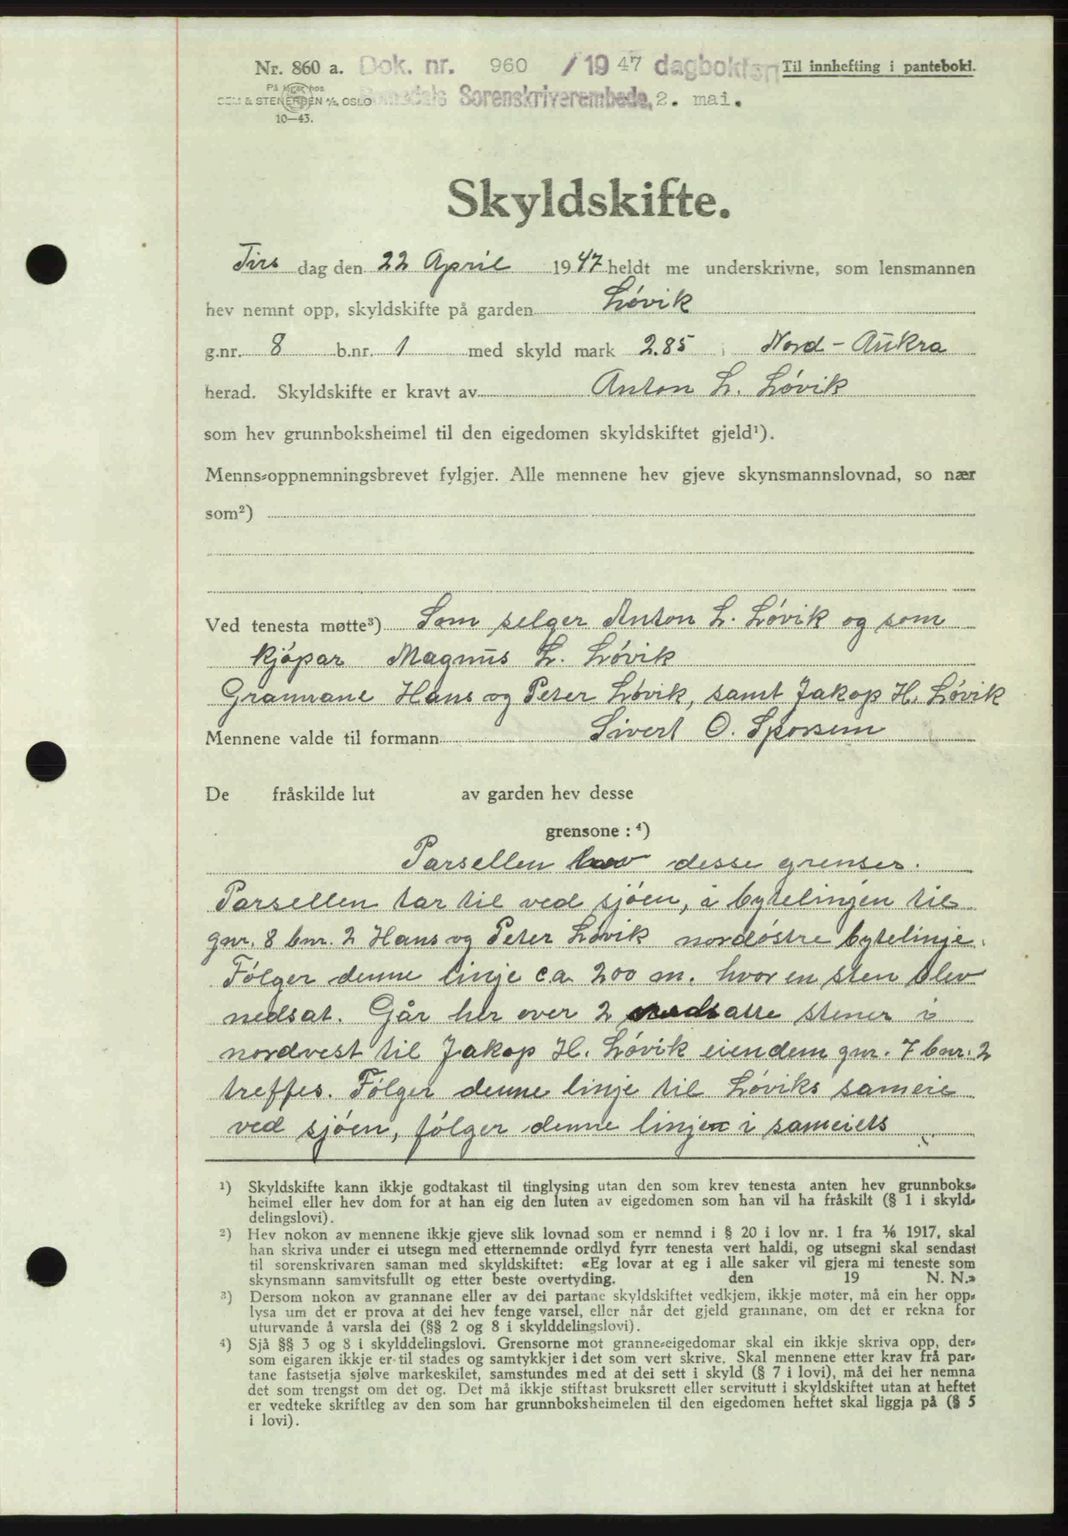 Nr. 860 a. Dok. nr. 960 / 19 47 dagbokføn Til innhefting i pantebok.
På lager hos
SEM & STENERSEN A/S, OSLO Romsdals Sorenskriverembede, 2. mai.
10—43.
Skyldskifte.
Tirs dag den 22 April 1947 heldt me underskrivne, som lensmannen
hev nemnt opp, skyldskifte på garden Lóvik
g.nr. 8 b.nr. 1 med skyld mark 2.85 i Nord-Aukra
herad. Skyldskifte er kravt av Anton L. Lóvik
som hev grunnboksheimel til den eigedomen skyldskiftet gjeld¹).
Menns-oppnemningsbrevet fylgjer. Alle mennene hev gjeve skynsmannslovnad, so nær
som²)
Ved tenesta møtte³) Som selger Anton L. Lóvik og som
kjópar Magnus L. Lóvik
Grannane Hans og Peter Lóvik, samt Jakop H. Lóvik
Mennene valde til formann Sivert O. Sporsem
De fråskilde lut av garden hev desse
grensone : ⁴)
Parsellen hev desse grenser.
Parsellen tar til ved sjóen, i bytelinjen til
gnr. 8 bnr. 2 Hans og Peter Lóvik nordóstre bytelinje.
Fólger denne linje ca 200 m. hvor en sten blev
nedsat. Går her over 2 nedsatte stener i
nordvest til Jakop H. Lóvik eiendem gnr. 7 bnr. 2
treffes. Fólger denne linje til Lóviks sameie
ved sjóen, fólger denne linjen i sameiets
¹) Skyldskifte kann ikkje godtakast til tinglysing utan den som krev tenesta anten hev grunnboks-
heimel eller hev dom for at han eig den luten av eigedomen som han vil ha fråskilt (§ 1 i skyld-
delingslovi).
²) Hev nokon av mennene ikkje gjeve slik lovnad som er nemnd i § 20 i lov nr. 1 fra 1/6 1917, skal
han skriva under ei utsegn med etternemnde ordlyd fyrr tenesta vert haldi, og utsegni skal sendast
til sorenskrivaren saman med skyldskiftet: «Eg lovar at eg i alle saker vil gjera mi teneste som
skynsmann samvitsfullt og etter beste overtyding. den 19 N. N.»
³) Dersom nokon av grannane eller av dei partane skyldskiftet vedkjem, ikkje møter, må ein her opp-
lysa um det er prova at dei hev fenge varsel, eller når det gjeld grannane, om det er rekna for
uturvande å varsla dei (§§ 2 og 8 i skylddelingslovi).
⁴) Sjå §§ 3 og 8 i skylddelingslovi. Grensorne mot granne-eigedomar skal ein ikkje skriva opp, der-
som eigaren ikkje er til stades og samtykkjer i det som vert skrive. Skal mennene etter krav frå par-
tane fastsetja sjølve markeskilet, samstundes med at dei sett i skyld (§ 7 i lovi), må dei her nemna
det som trengst om det og. Det må ikkje stiftast bruksrett eller servitutt i skyldskiftet utan at heftet
er vedteke skriftleg av den som har grunnboksheimelen til den eigedomen heftet skal liggja på (§ 5
i lovi).